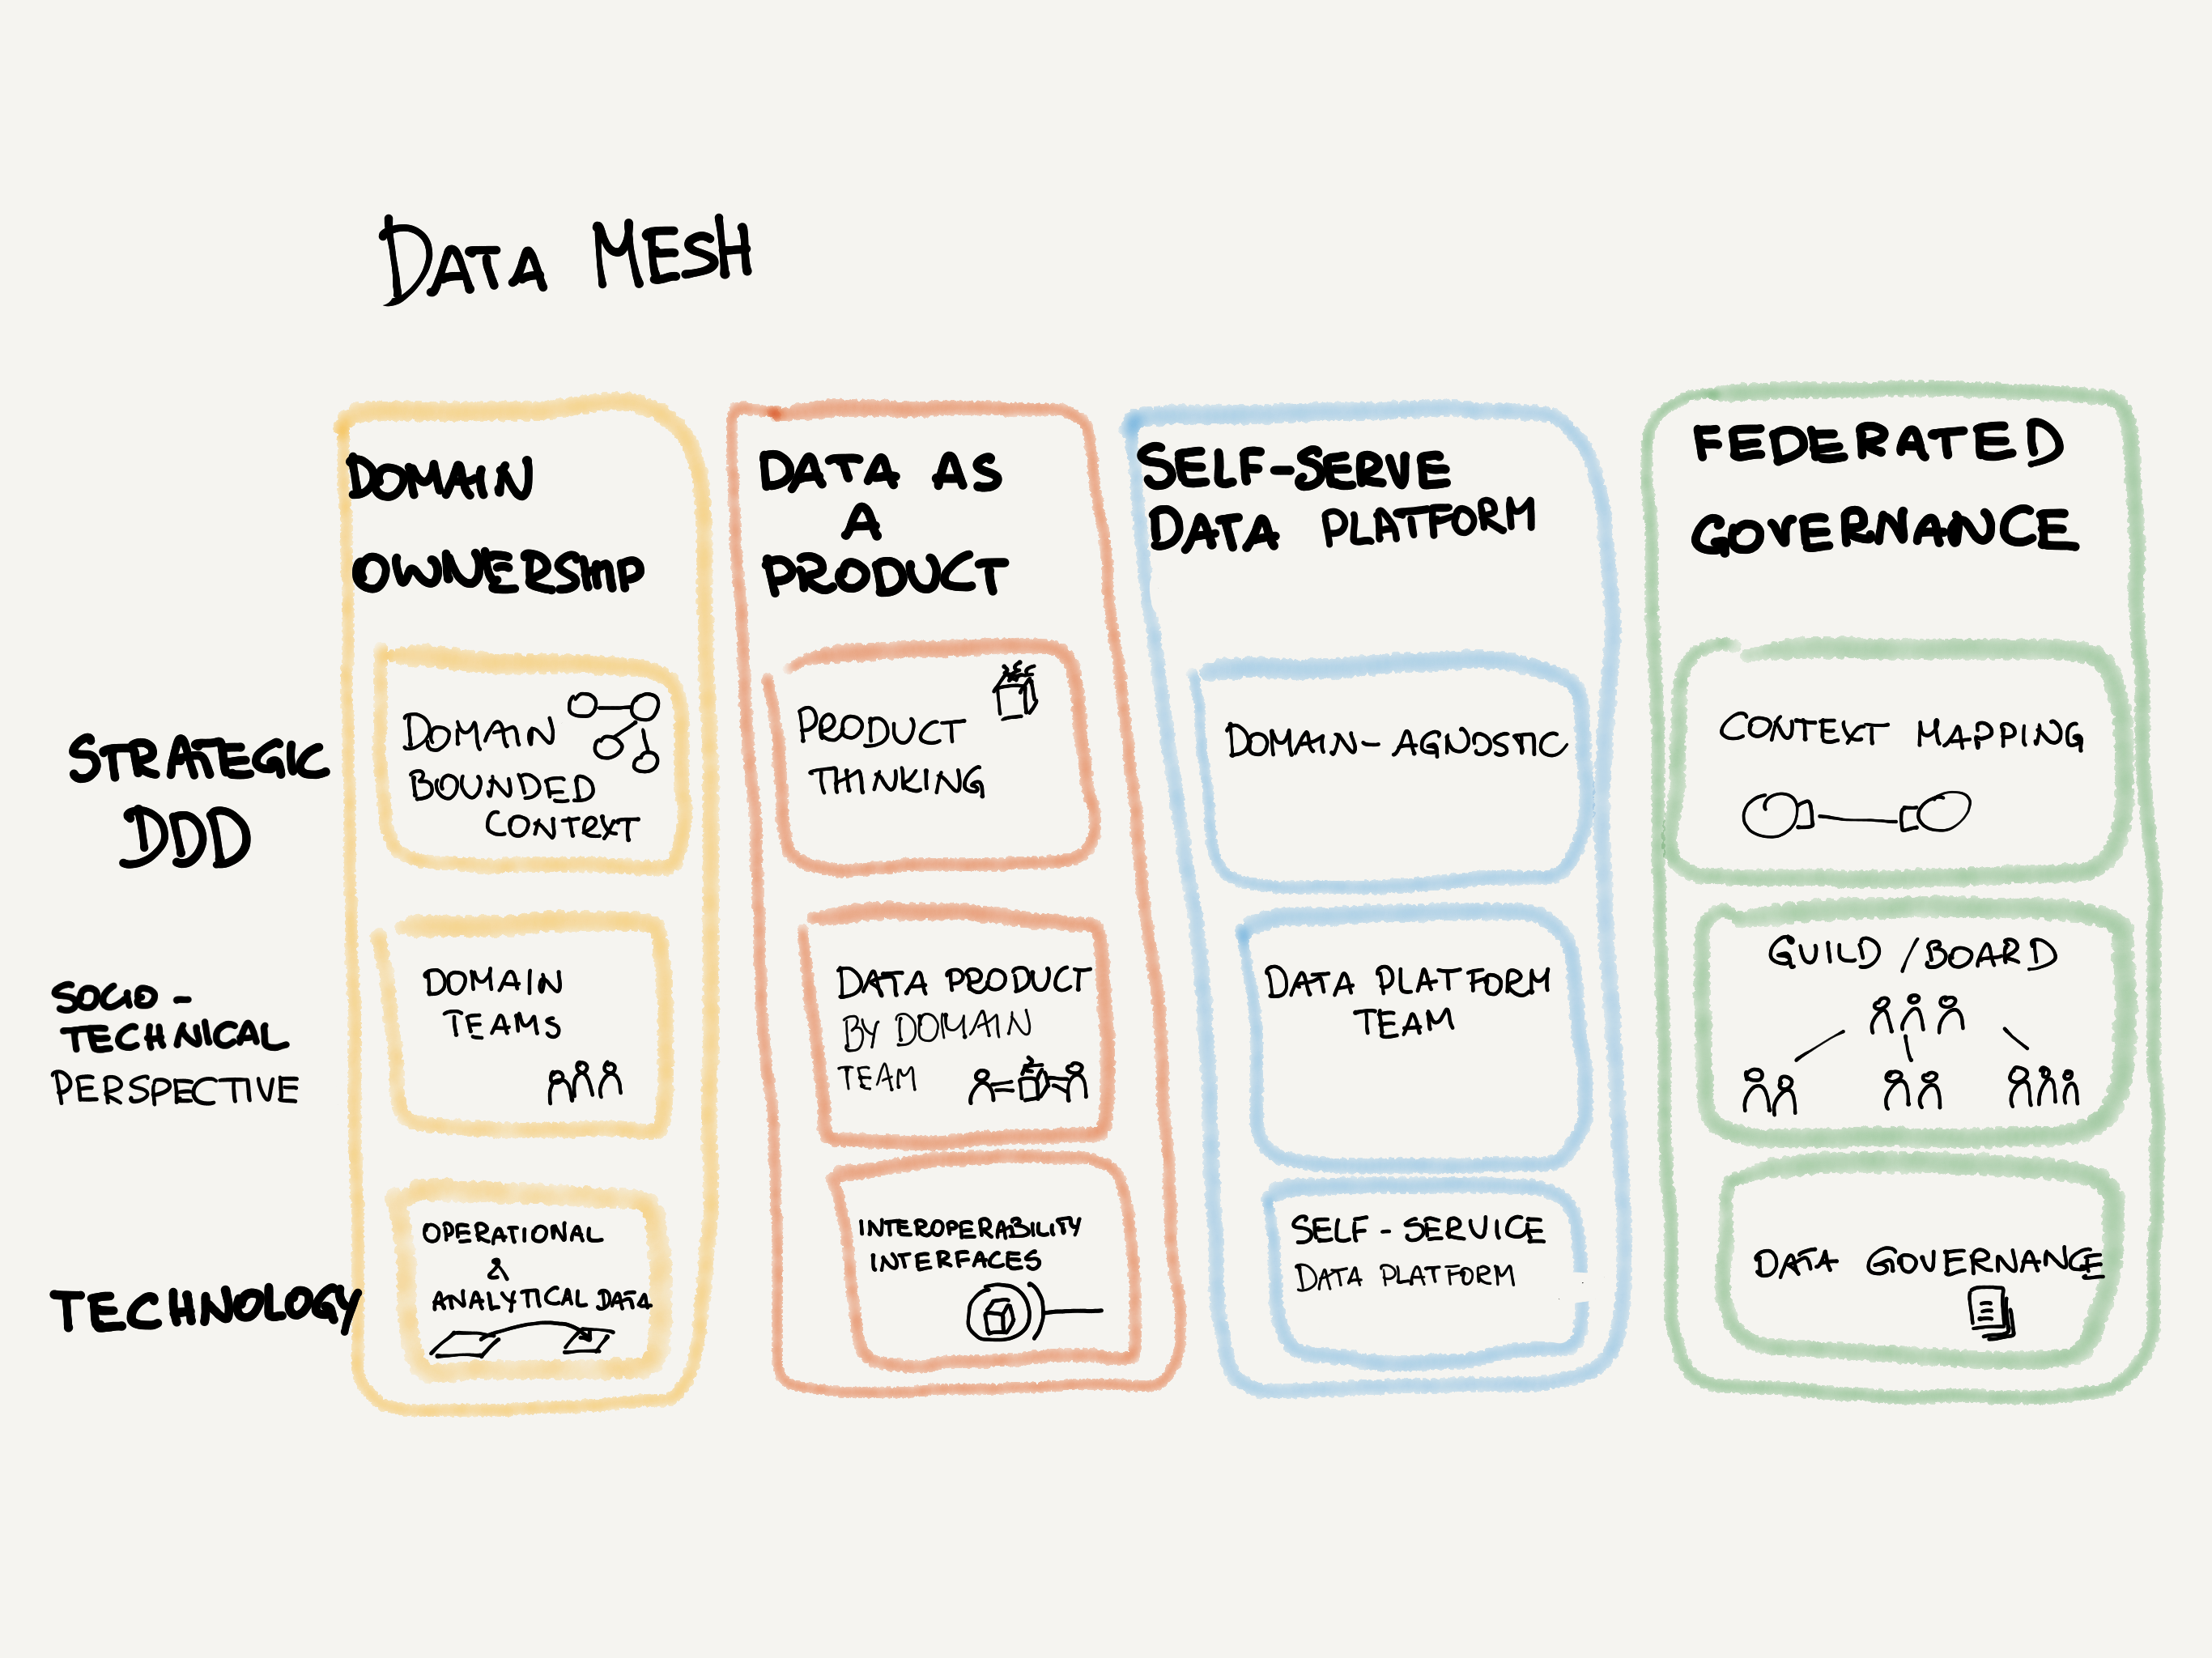 DATA MESH
DOMAIN
OWNERSHIP
DATA AS
A
PRODUCT
SELF-SERVE
DATA PLATFORM
FEDERATED
GOVERNANCE
STRATEGIC
DDD
DOMAIN
BOUNDED
CONTEXT
PRODUCT
THINKING
DOMAIN-AGNOSTIC
CONTEXT MAPPING
SOCIO-
TECHNICAL
PERSPECTIVE
DOMAIN
TEAMS
DATA PRODUCT
BY DOMAIN
TEAM
DATA PLATFORM
TEAM
GUILD /BOARD
TECHNOLOGY
OPERATIONAL
&
ANALYTICAL DATA
INTEROPERABILITY
INTERFACES
SELF-SERVICE
DATA PLATFORM
DATA GOVERNANCE